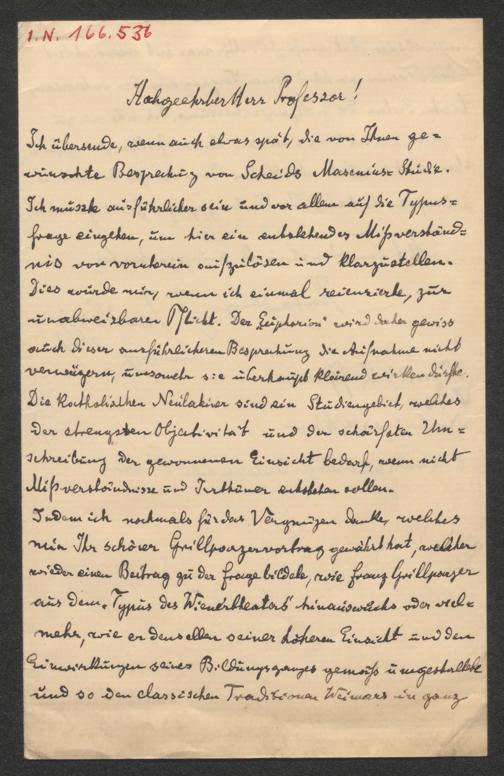 I.N. 166.536
Hochgeehrter Herr Professor!
Ich übersende, wenn auch etwas spät, die von Ihnen ge=
wünschte Besprechung von Scheids Masenius-Studie.
Ich musste ausführlicher sein und vor allem auf die Typus=
frage eingehen, um hier ein entstehendes Mißverständ=
nis von vornherein aufzulösen und klarzustellen.
Dies wurde mir, wenn ich einmal rezensierte, zur
unabweisbaren Pflicht. Der „Euphorion" wird daher gewiss
auch dieser ausführlicheren Besprechung die Aufnahme nicht
verweigern, umsomehr sie überhaupt klärend wirken dürfte.
Die katholischen Neulateiner sind ein Studiengebiet, welches
der strengsten Objectivität und der schärfsten Um=
schreibung der gewonnenen Einsicht bedarf, wenn nicht
Mißverständnisse und Irrthümer entstehen sollen.
Indem ich nochmals für das Vergnügen danke, welches
mir Ihr schöner Grillparzervortrag gewährt hat, welcher
wieder einen Beitrag zu der Frage bildete, wie Franz Grillparzer
aus dem „Typus des Wienertheaters" hinauswuchs oder viel=
mehr, wie er denselben seiner höheren Einsicht und den
Einwirkungen seines Bildungsganges gemäss umgestaltete
und so den classischen Traditionen Weimars in ganz